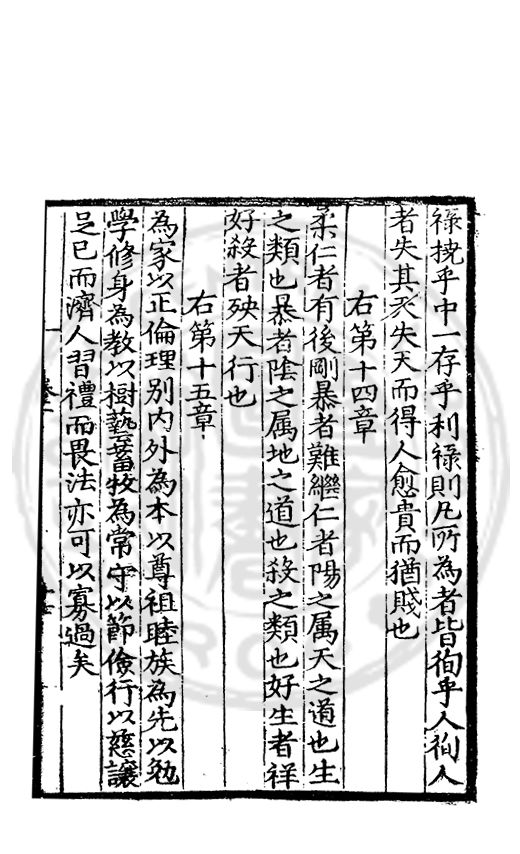 祿撓乎中一存乎利祿則凡所為者皆徇乎人徇人
者失其天失天而得人愈貴而猶賤也
右第十四章
柔仁者有後剛暴者難繼仁者陽之属天之道也生
之類也暴者陰之属地之道也殺之類也好生者祥
好殺者殃天行也
右第十五章
為家以正倫理别內外為本以尊祖睦族為先以勉
學修身為教以樹藝蓄牧為常守以節儉行以慈讓
足已而濟人習禮而畏法亦可以寡過矣